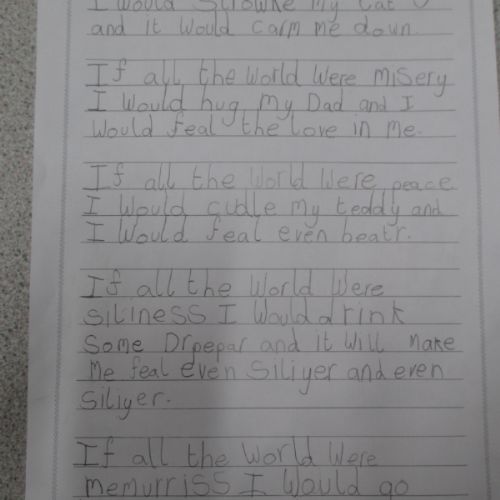 I would Strowke My Cat
and it would carm me down.
If all the world were Misery
I would hug my Dad and I
would feal the love in me.
If all the world were peace
I would cudle my teddy and
I would feal even beatr.
If all the world were
siliness I would drink
Some Drpepar and it will make
me feal even Siliyer and even
Siliyer.
If all the world were
memurriss I would go